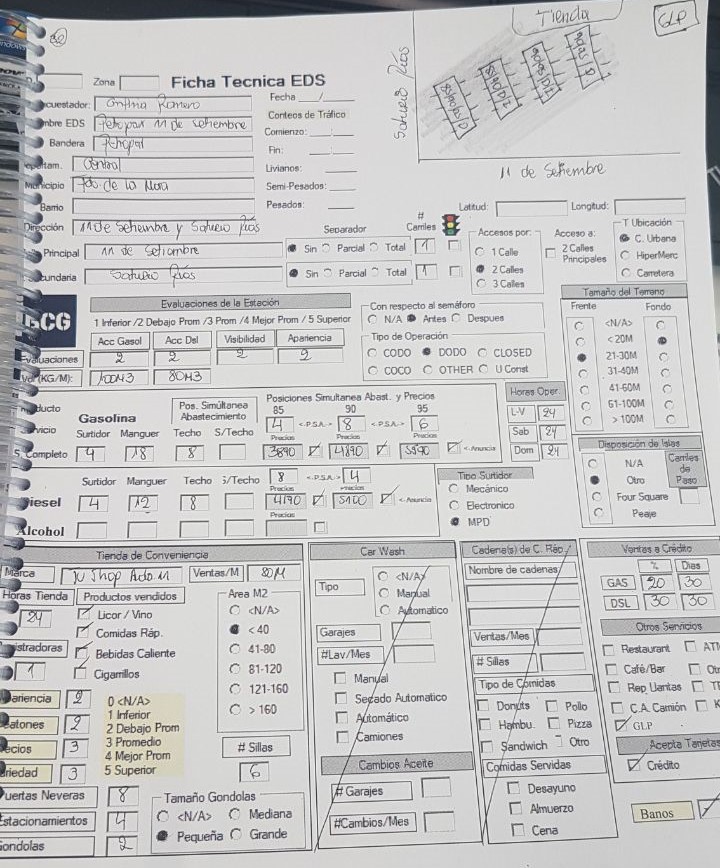 Tienda
GLP
Saturio Ríos
90/95/D
11 de Setiembre
Zona
Ficha Tecnica EDS
cuestador: Romero
Fecha __/__
mbre EDS Petropar 11 de setiembre
Conteos de Tráfico
Bandera Petropar
Comienzo: __:__
Fin: __:__
epartam. Central
Livianos:
Municipio Fdo. de la Mora
Semi-Pesados:
Barrio
Pesados:
Latitud: Longitud:
Dirección 11 de Setiembre y Saturio Ríos
Separador # Carriles
Principal 11 de Setiembre
Sin Parcial Total 1
cundaria Saturio Ríos
Sin Parcial Total 1
Accesos por:
1 Calle
2 Calles
3 Calles
Acceso a:
2 Calles Principales
T Ubicación
C. Urbana
HiperMerc
Carretera
CG
Evaluaciones de la Estación
1 Inferior /2 Debajo Prom /3 Prom /4 Mejor Prom / 5 Superior
Acc Gasol Acc Dsl Visibilidad Apariencia
valuaciones 2 2 2 2
Vol (KG/M): 100M3 80M3
Con respecto al semáforo
N/A Antes Despues
Tipo de Operación
CODO DODO CLOSED
COCO OTHER U Const
Tamaño del Terreno
Frente Fondo
<N/A>
< 20M
21-30M
31-40M
41-60M
61-100M
> 100M
ducto
Gasolina
Pos. Simúltanea Abastecimiento
Posiciones Simultanea Abast. y Precios
85 90 95
4 <-P.S.A.-> 8 <-P.S.A.-> 6
rvicio Surtidor Manguer Techo S/Techo
Precios Precios Precios
Completo 4 18 8 3890 4890 5590 <-Anuncia
Horas Oper.
L-V 24
Sab 24
Dom 24
Surtidor Manguer Techo S/Techo
8 <-P.S.A.-> 4
Precios Precios
iesel 4 12 8 4190 5100 <-Anuncia
Precios
Alcohol
Tipo Surtidor
Mecánico
Electronico
MPD
Disposición de Islas
N/A
Otro
Four Square
Peaje
Carriles de Paso
Tienda de Conveniencia
Marca Ventas/M 80M
Horas Tienda
24
Productos vendidos
Licor / Vino
Comidas Ráp.
Bebidas Caliente
Cigarrillos
istradoras
1
Area M2
<N/A>
< 40
41-80
81-120
121-160
> 160
ariencia 2
eatones 2
ecios 3
riedad 3
0 <N/A>
1 Inferior
2 Debajo Prom
3 Promedio
4 Mejor Prom
5 Superior
# Sillas
6
uertas Neveras 8
stacionamientos 4
ondolas 2
Tamaño Gondolas
<N/A> Mediana
Pequeña Grande
Car Wash
Tipo
<N/A>
Manual
Automatico
Garajes
#Lav/Mes
Manual
Secado Automatico
Automático
Camiones
Cambios Aceite
# Garajes
#Cambios/Mes
Cadena(s) de C. Ráp.
Nombre de cadenas
Ventas/Mes
# Sillas
Tipo de Comidas
Donuts Pollo
Hambu. Pizza
Sandwich Otro
Comidas Servidas
Desayuno
Almuerzo
Cena
Ventas a Crédito
% Dias
GAS 20 30
DSL 30 30
Otros Servicios
Restaurant
Café/Bar
Rep. Llantas
C.A. Camión
GLP
Acepta Tarjetas
Crédito
Banos